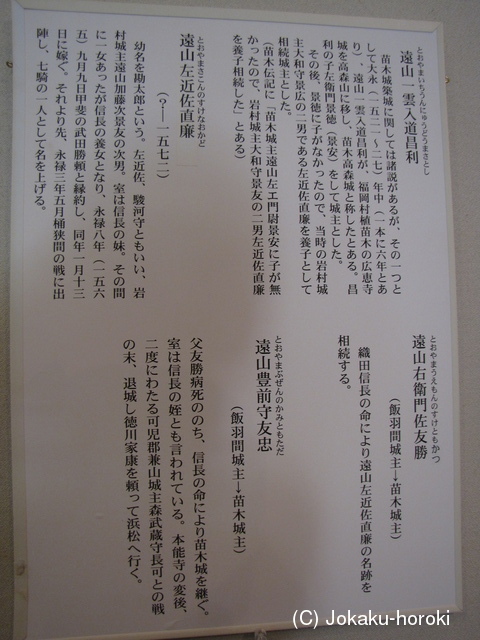 とおやまいちうんにゅうどうまさとし
遠山 一雲入道昌利
苗木城築城に関しては諸説があるが、その一つと
して大永（一五二一～二七）年中（一本に六年とあ
り）、遠山一雲入道昌利が、福岡村植苗木の広恵寺
城を高森山に移し、苗木高森城と称したとある。昌
利の子左衛門景徳（景安）をして城主とした。
その後、景徳に子がなかったので、当時の岩村城
主大和守景広の二男である左近佐直廉を養子として
相続城主とした。
（苗木伝記に「苗木城主遠山左エ門尉景安に子が無
かったので、岩村城主大和守景友の二男左近佐直廉
を養子相続した」とある）
とおやまさこんのすけなおかど
遠山左近佐直廉
（？―一五七二）
幼名を勘太郎という。左近佐、駿河守ともいい、岩
村城主遠山加藤次景友の次男。室は信長の妹。その間
に一女あったが信長の養女となり、永禄八年（一五六
五）九月九日甲斐の武田勝頼と縁約し、同年一月十三
日に嫁ぐ。それより先、永禄三年五月桶狭間の戦に出
陣し、七騎の一人として名を上げる。
とおやまうえもんのすけともかつ
遠山右衛門佐友勝
（飯羽間城主→苗木城主）
織田信長の命により遠山左近佐直廉の名跡を
相続する。
とおやまぶぜんのかみともただ
遠山豊前守友忠
（飯羽間城主→苗木城主）
父友勝病死ののち、信長の命により苗木城を継ぐ。
室は信長の姪とも言われている。本能寺の変後、
二度にわたる可児郡兼山城主森武蔵守長可との戦
の末、退城し徳川家康を頼って浜松へ行く。
(C) Jokaku-horoki